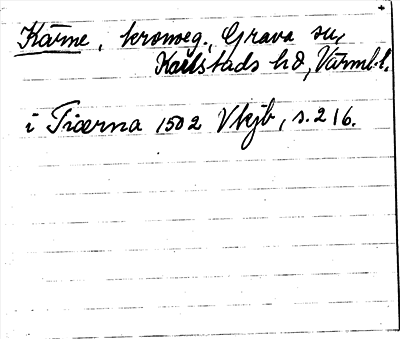 Kärne, kronoeg., Grava sn,
Karlstads hd, Värml. l.
i Tiærna 1502 Vkjb, s. 216.